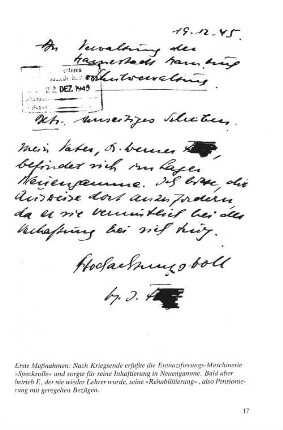 19.12.45.
An Verwaltung der
Hansestadt Hamburg
Schulverwaltung.
22 DEZ 1945
Betr. unseriges Schreiben.
Mein Vater, Dr. Werner
befindet sich im Lager
Neuengamme. Ich bitte, die
Ausweise dort anzufordern
da er sie vermutlich bei der
Verhaftung bei sich trug.
Hochachtungsvoll
Erste Maßnahmen: Nach Kriegsende erfaßte die Entnazifizierungs-Maschinerie
»Speckrolle« und sorgte für seine Inhaftierung in Neuengamme. Bald aber
betrieb F., der nie wieder Lehrer wurde, seine »Rehabilitierung«, also Pensionie-
rung mit geregelten Bezügen.
17